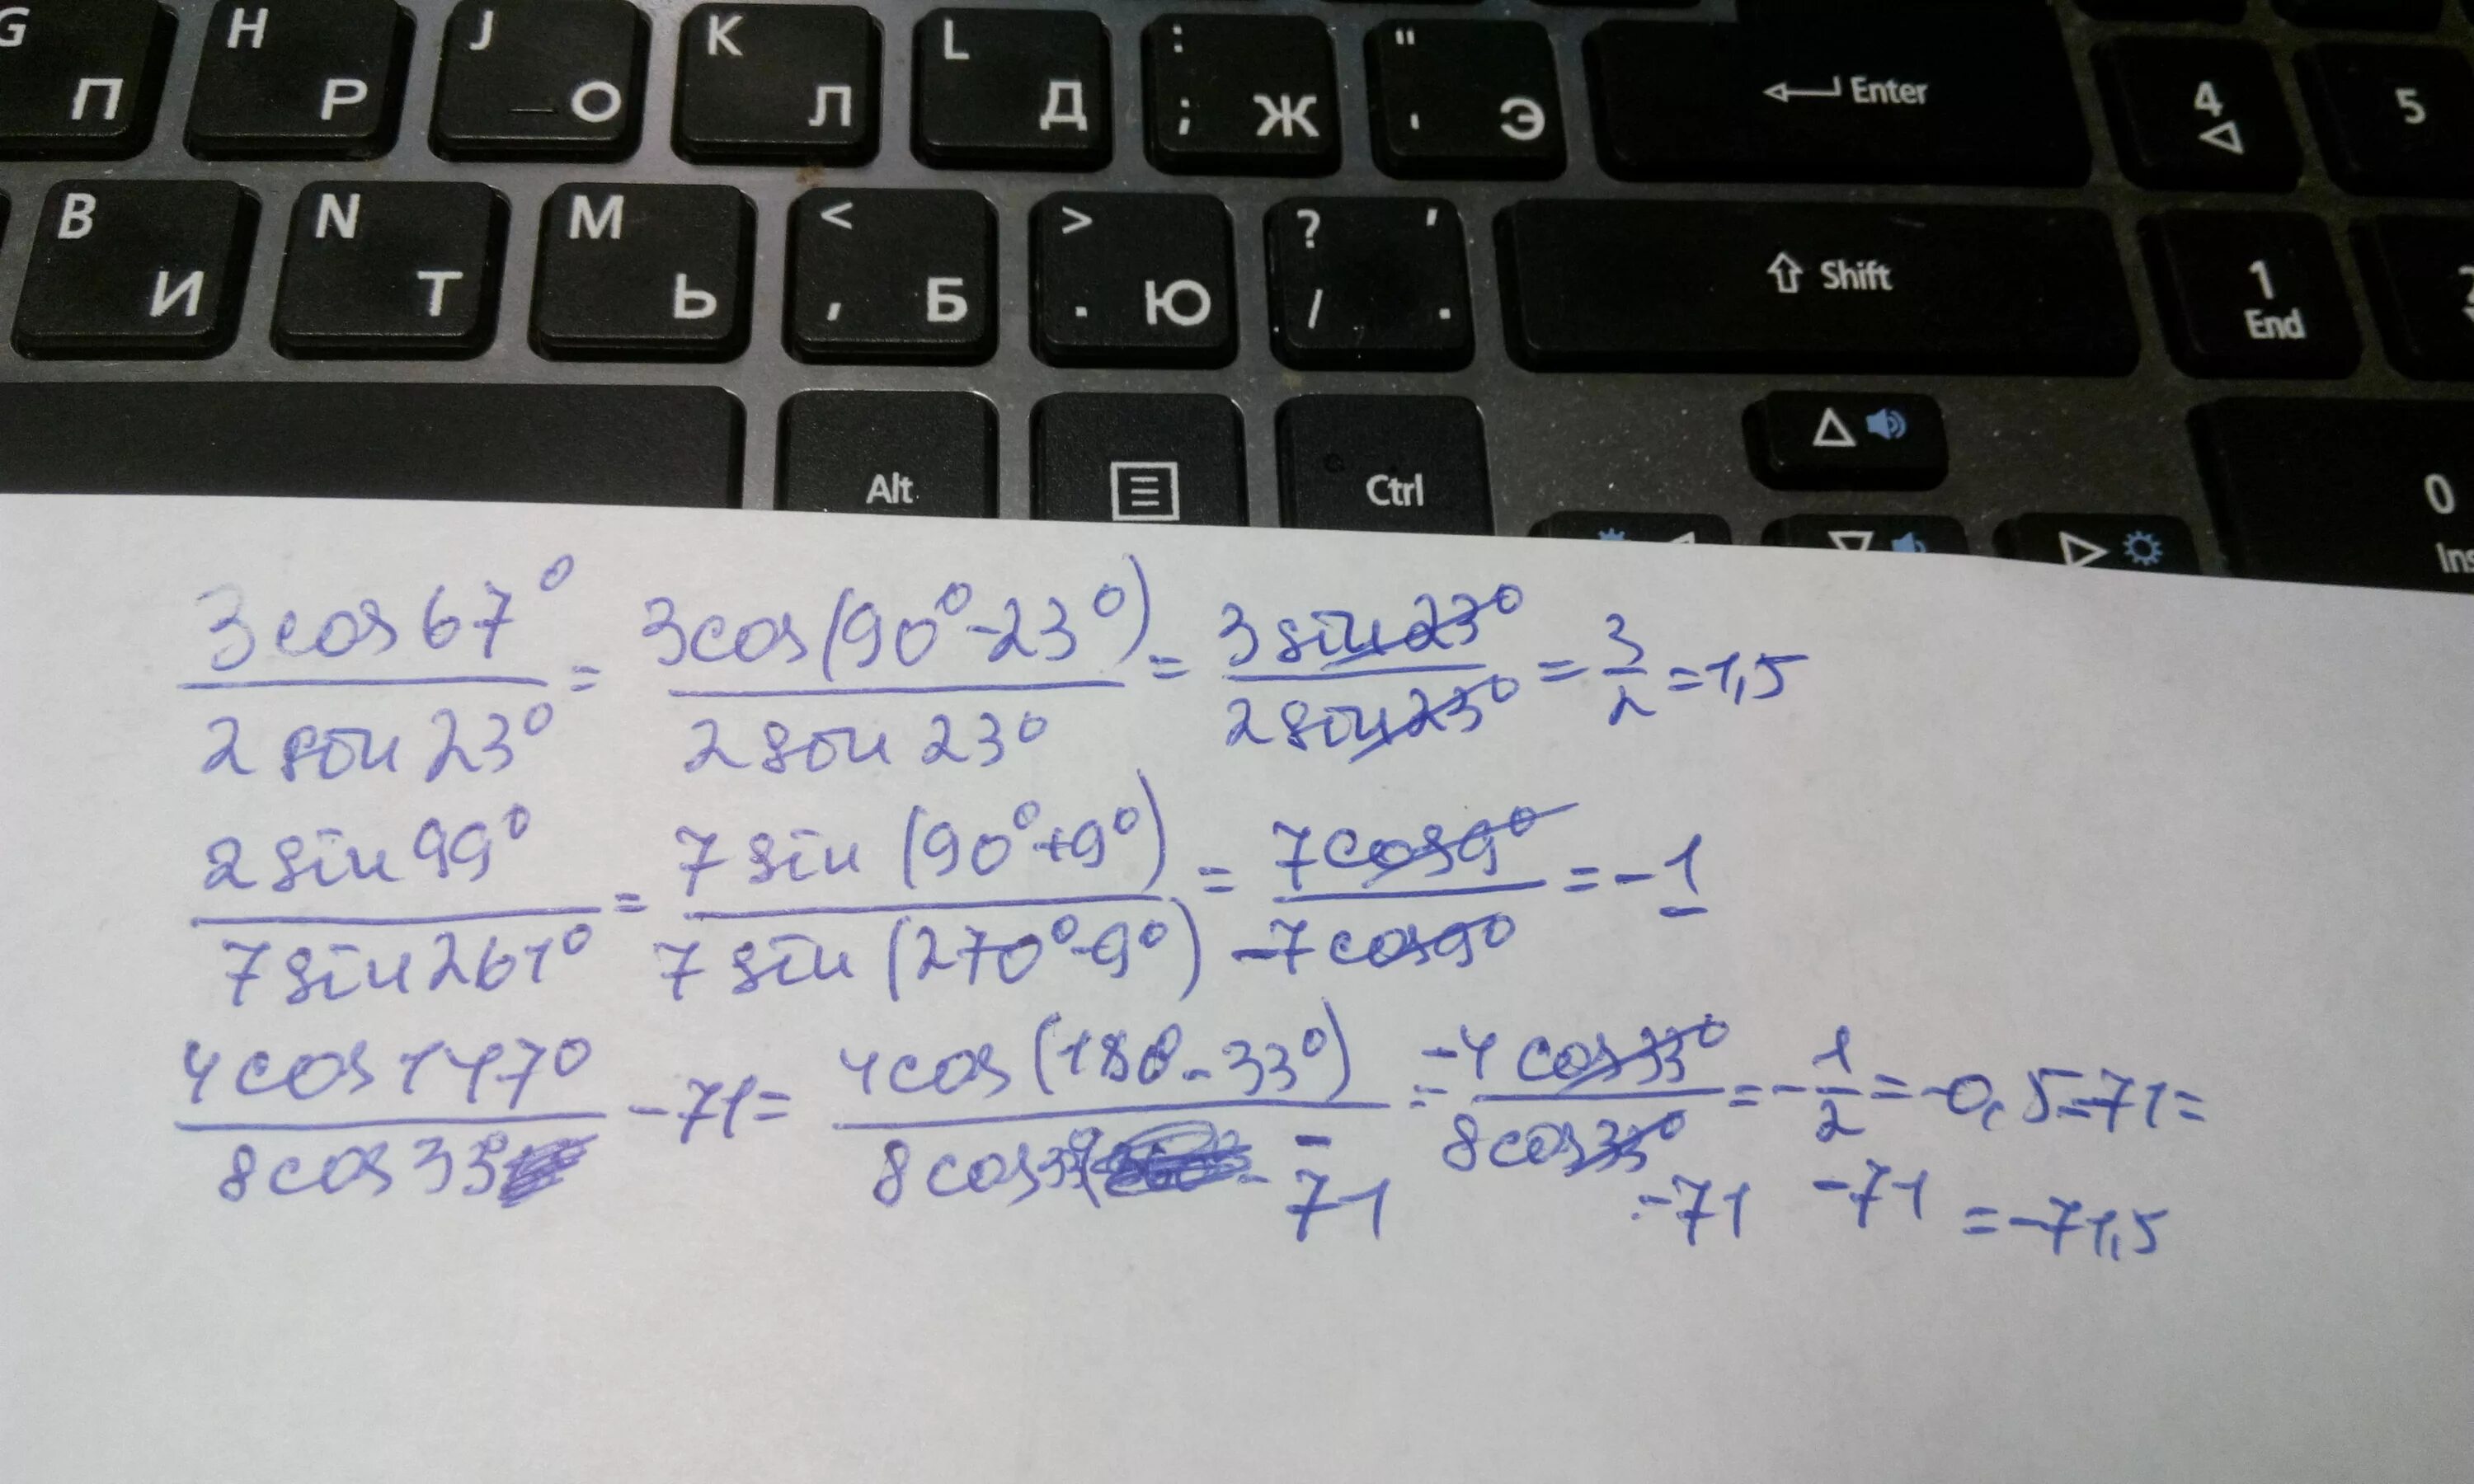 G П H Р J О K Л L Д : ; Ж " ' Э Enter 4 5
B И N Т M Ь < , Б > . Ю ? / , . Shift 1 End
Alt Ctrl 0 Ins
3cos67° / 2sin23° = 3cos(90°-23°) / 2sin23° = 3sin23° / 2sin23° = 3/2 = 1,5
2sin99° / 7sin261° = 7sin(90°+9°) / 7sin(270°-9°) = 7cos9° / -7cos9° = -1
4cos147° / 8cos33° -71 = 4cos(180-33°) / 8cos33° - 71 = -4cos33° / 8cos33° -71 = -1/2 -71 = -0,5-71=
=-71,5